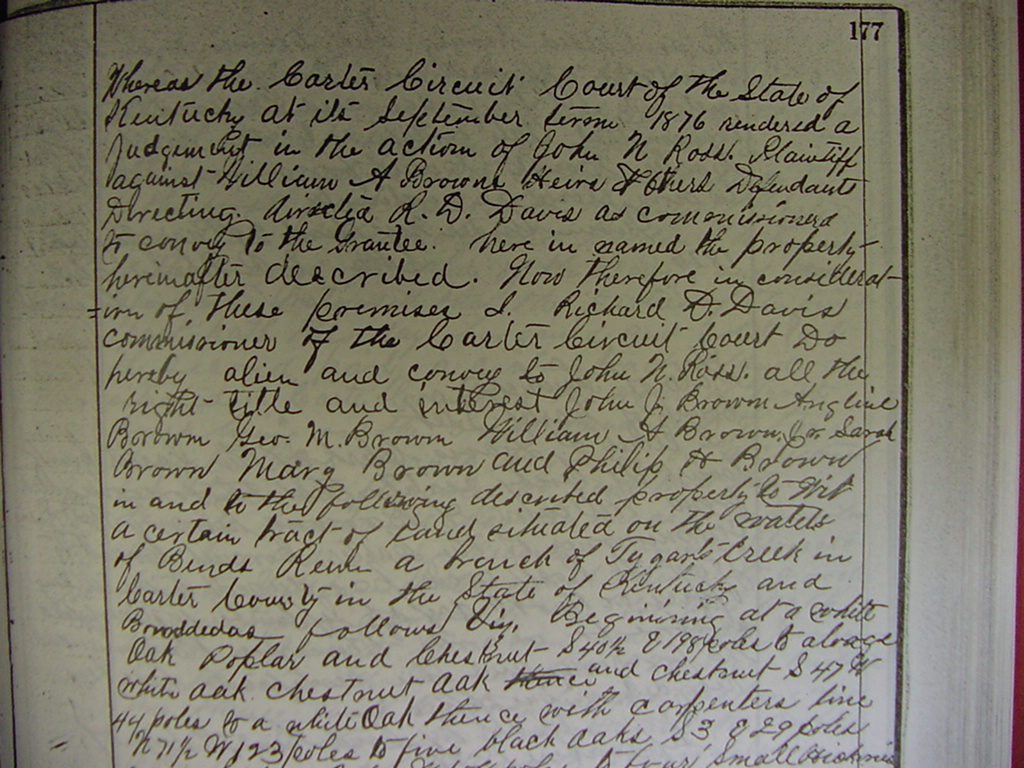 177
Whereas the Carter Circuit Court of the State of
Kentucky at its September term 1876 rendered a
Judgement in the action of John N Ross. Plaintiff
against William A Browns Heirs & others Defendants
Directing directed R. D. Davis as commissioner
to convey to the Grantee. here in named the property
hereinafter described. Now therefore in considerat-
=ion of these premises I. Richard D. Davis
commissioner of the Carter Circuit Court Do
hereby alien and convey to John N. Ross. all the
right title and interest John J. Brown Angline
Borown Geo. M. Brown William A Brown. Jr. Sarah
Brown Mary Brown and Philip H Brown
in and to the following described property to Wit
a certain tract of Land situated on the waters
of a branch of Tygarts Creek in
Carter County in the State of Kentucky and
follows Viz. Begining at a white
Oak Poplar and Chestnut S 40½ E 198 poles to a large
white oak chestnut oak and chestnut S 47 W
44 poles to a white Oak thence with carpenters line
N 71½ W 123 poles to five black oaks S 3 E 29 poles
to four small Hickories